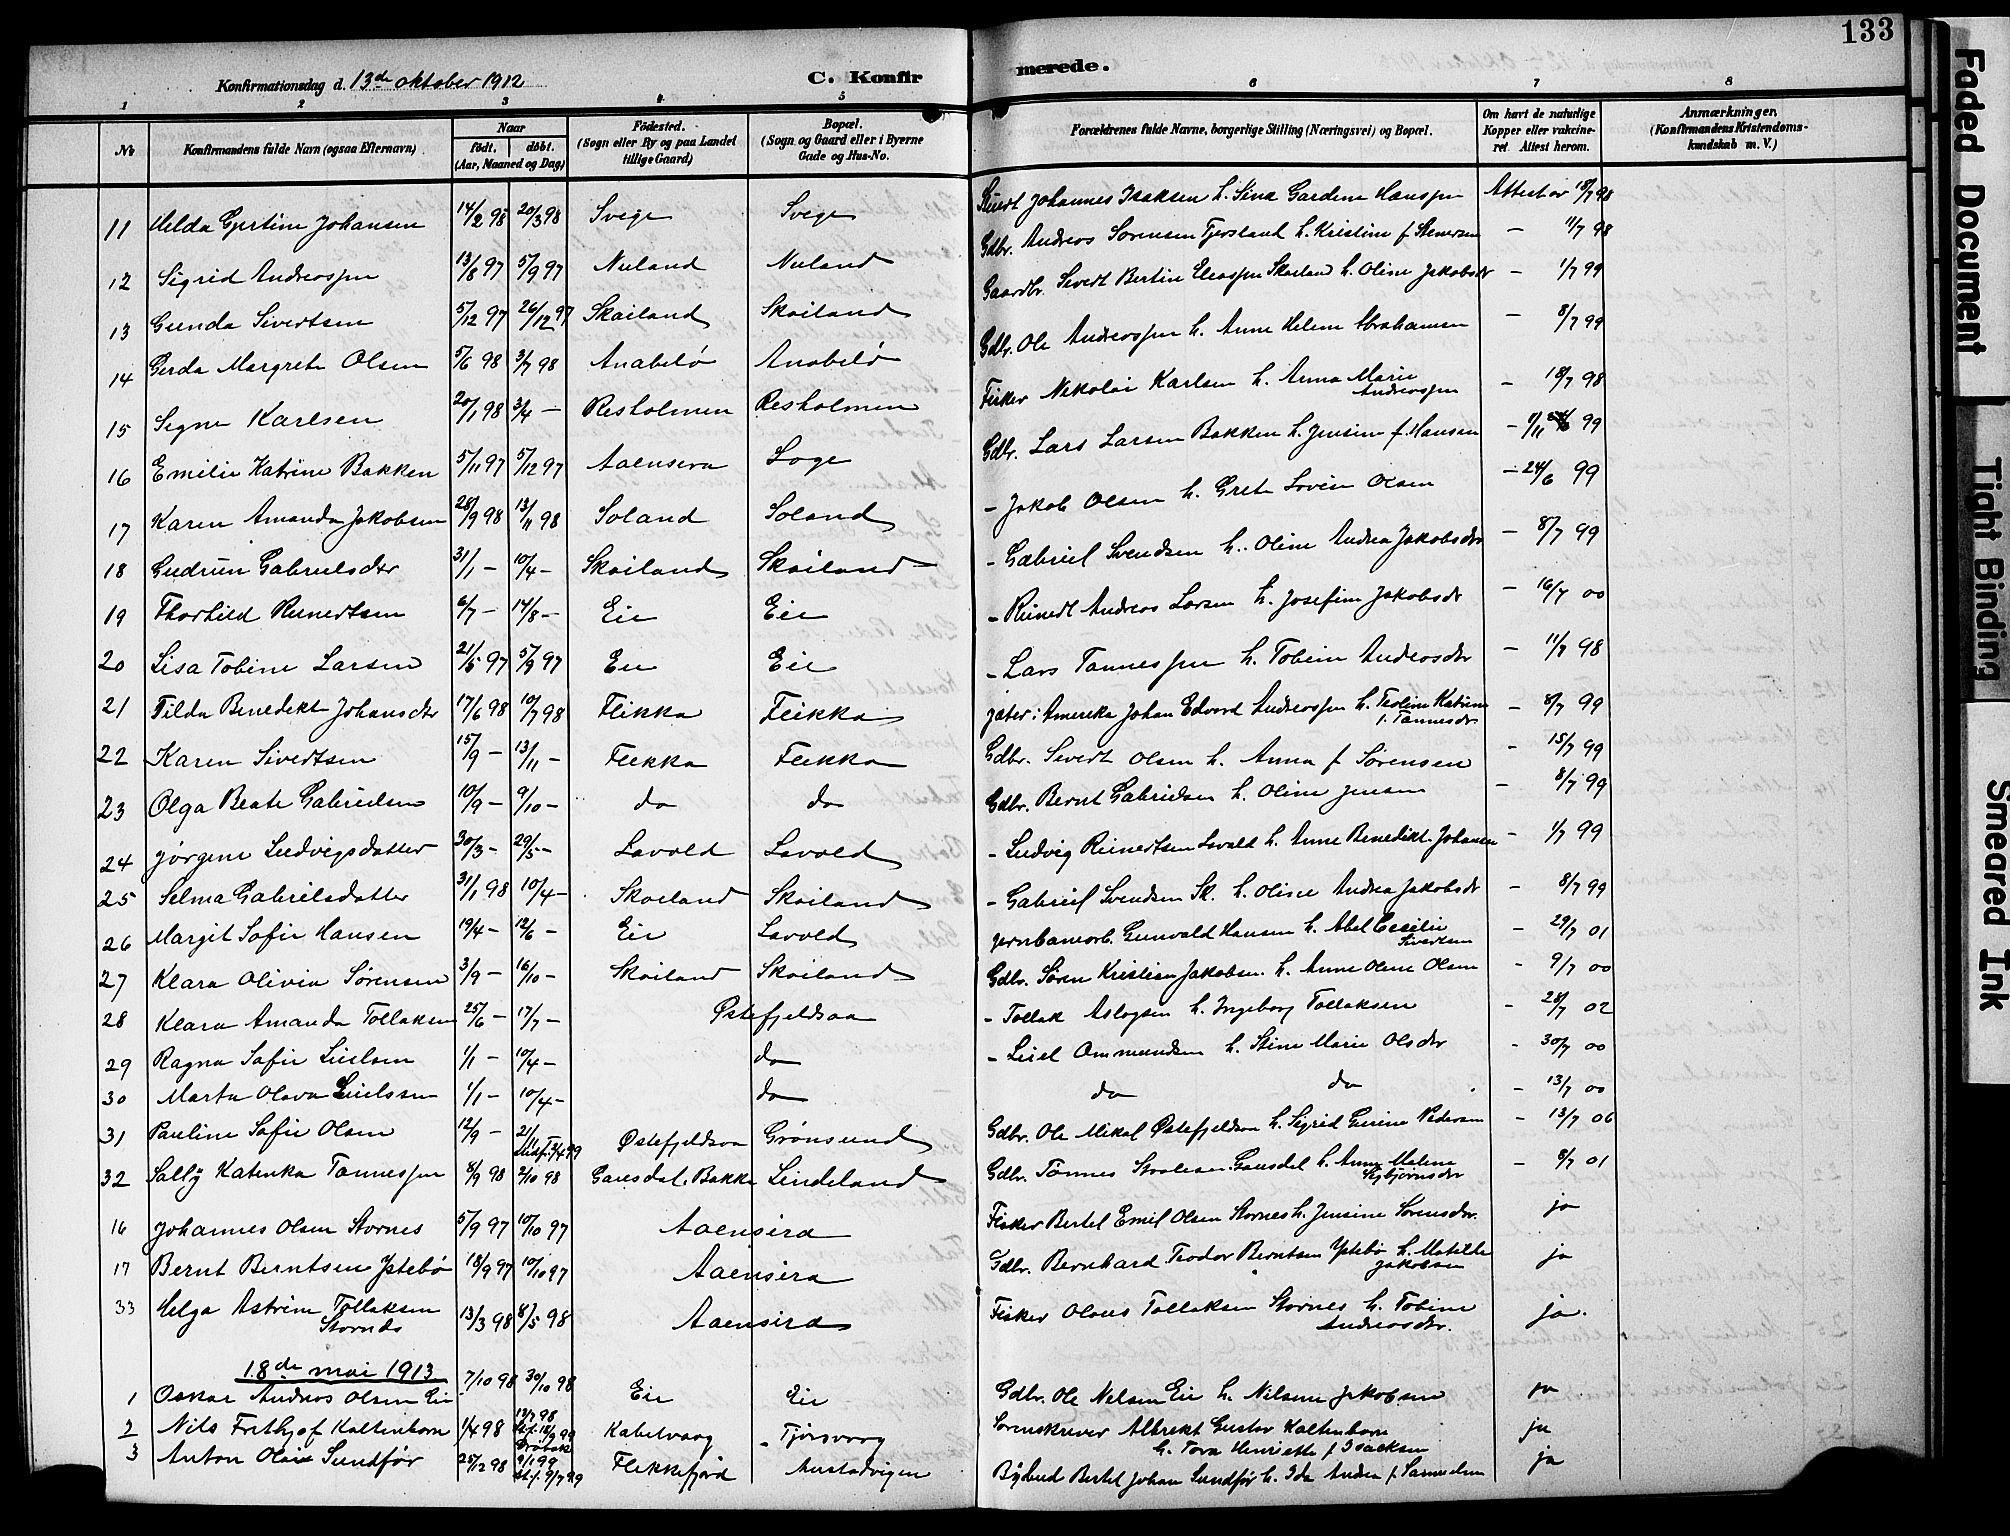 133
Konfirmationsdag d. 13de oktober 1912
C. Konfirmerede.
1 2 3 4 5 6 7 8
No
Konfirmandens fulde Navn (ogsaa Efternavn)
Naar
födt. döbt.
(Aar, Maaned og Dag)
Födested.
(Sogn eller By og paa Landet tillige Gaard)
Bopæl.
(Sogn og Gaard eller i Byerne Gade og Hus-No.
Forældrenes fulde Navne, borgerlige Stilling (Næringsvei) og Bopæl.
Om havt de naturlige Kopper eller vakcineret. Attest herom.
Anmærkninger.
(Konfirmandens Kristendomskundskab m. V.)
11 Helda Gjertine Johansen 14/2 98 20/3 98 Svege Svege Johannes Isaksen h. Sina Gardine Hansen Attest av 18/7 98
12 Sigrid Andreassen 13/8 97 5/9 97 Nuland Nuland Gdbr. Andreas Sörensen Tjersland h. Kristine f. Stenersen — 11/7 98
13 Gunda Sivertsen 5/12 97 26/12 97 Skailand Skailand Gaardbr. Sivert Bertin Eleasen Skailand h. Oline Jakobsdr — 1/7 99
14 Gerda Margrete Olsen 5/6 98 3/7 98 Anabelö Anabelö Gdbr. Ole Andreassen h. Anne Helene Abrahamsen — 8/7 99
15 Signe Karlsen 20/1 98 3/4 — Resholmen Resholmen Fisker Nikolai Karlsen h. Anna Marie Andreassen — 18/7 98
16 Emilie Katrine Bakken 5/11 97 5/12 97 Aaensira Loge Gdbr. Lars Larsen Bakken h. Jensine f. Hansen — 99
17 Karen Amanda Jakobsen 28/9 98 13/11 98 Soland Soland - Jakob Olsen h. Grete Lovise Olsen — 24/6 99
18 Gudrun Gabrielsdtr 31/1 — 10/4 — Skailand Skailand - Gabriel Svendsen h. Oline Andrea Jakobsdr — 8/7 99
19 Thorhild Reinertsen 6/7 — 14/8 — Eie Eie - Reinert Andreas Larsen h. Josefine Jakobsdr — 16/7 00
20 Lisa Tobine Larsen 21/5 97 5/9 97 Eie Eie - Lars Tønnessen h. Tobine Andreasdr — 11/7 98
21 Tilda Benedikte Johansdtr 17/6 98 10/7 98 Flikka Flikka i Amerika Johan Edvard Andreassen h. Teoline Katrine f. Tønnesdr — 8/7 99
22 Karen Sivertsen 15/9 — 13/11 — Flikka Flikka Gdbr. Sivert Olsen h. Anna f Sörensen — 15/7 99
23 Olga Beate Gabrielsen 10/9 — 9/10 — do do Gdbr. Bernt Gabrielsen h. Oline Jensen — 8/7 99
24 Jörgine Ludvigsdatter 30/3 — 29/5 — Lavold Lavold - Ludvig Reinertsen Lavold h. Anne Benedikte Johansen — 1/7 99
25 Selma Gabrielsdatter 31/1 98 10/4 — Skailand Skailand - Gabriel Svendsen Sk. h. Oline Andrea Jakobsdr — 8/7 99
26 Margit Sofie Hansen 19/4 — 12/6 — Eie Lavold Jernbanearb. Gunvald Hansen h. Abel Cecilie Sivertsen — 29/7 01
27 Klara Olivia Sörensen 3/9 — 16/10 — Skailand Skailand Gdbr. Sören Kristian Jakobsen h. Anne Oline Olsen — 9/7 00
28 Klara Amanda Tollaksen 25/6 — 17/7 — Østefjeldsaa - Tollak Aslagsen h. Ingeborg Tollaksen — 28/7 02
29 Ragna Sofie 1/1 — 10/4 — do Ommundsen h. Stine Marie Olsdtr - 30/7 00
30 Marta Olava 1/1 — 10/4 — do do do — 13/7 00
31 Pauline Sofie Olsen 12/9 — Østefjeldsaa Grönsund Gdbr. Ole Mikal Østefjeldsaa h. Sigrid Gurine Pedersen — 13/7 06
32 Sally Katinka Tønnessen 8/9 98 2/10 98 Gausdal, Bakke Lindeland Gdbr. Tönnes Gausdal h. Anne Malene — 8/7 01
16 Johannes Olsen Stornes 5/9 97 10/10 97 Aaensira Fisker Bertel Emil Olsen Stornes h. Jensine Sörensdr. ja
17 Bernt Berntsen Ystebö 18/9 97 10/10 97 Aaensira Gdbr. Bernhard Teodor Berntsen Ystebö h. Matilde Jakobsen ja
33 Helga Astrine Tollaksen Stornes 13/3 98 8/5 98 Aaensira Fisker Olaus Tollaksen Stornes h. Tobine Andreasdr. ja.
18de mai 1913
1 Oskar Andreas Olsen Eie 7/10 98 30/10 98 Eie Eie Gdbr. Ole Nelsen Eie h. Nilsine Jakobsen ja
2 Nils Frithjof Kaltenborn 1/4 98 Kabelvaag Tjörsvaag Sorenskriver Albrekt Gustav Kaltenborn h. Tora Henriette f Isacksen ja
3 Anton Olai Sundför 25/12 98 Flekkefjord Austadvigen Bybud Bertel Johan Sundför h. Ida Andrea f. Samuelsen ja
Faded Document
Tight Binding
Smeared Ink